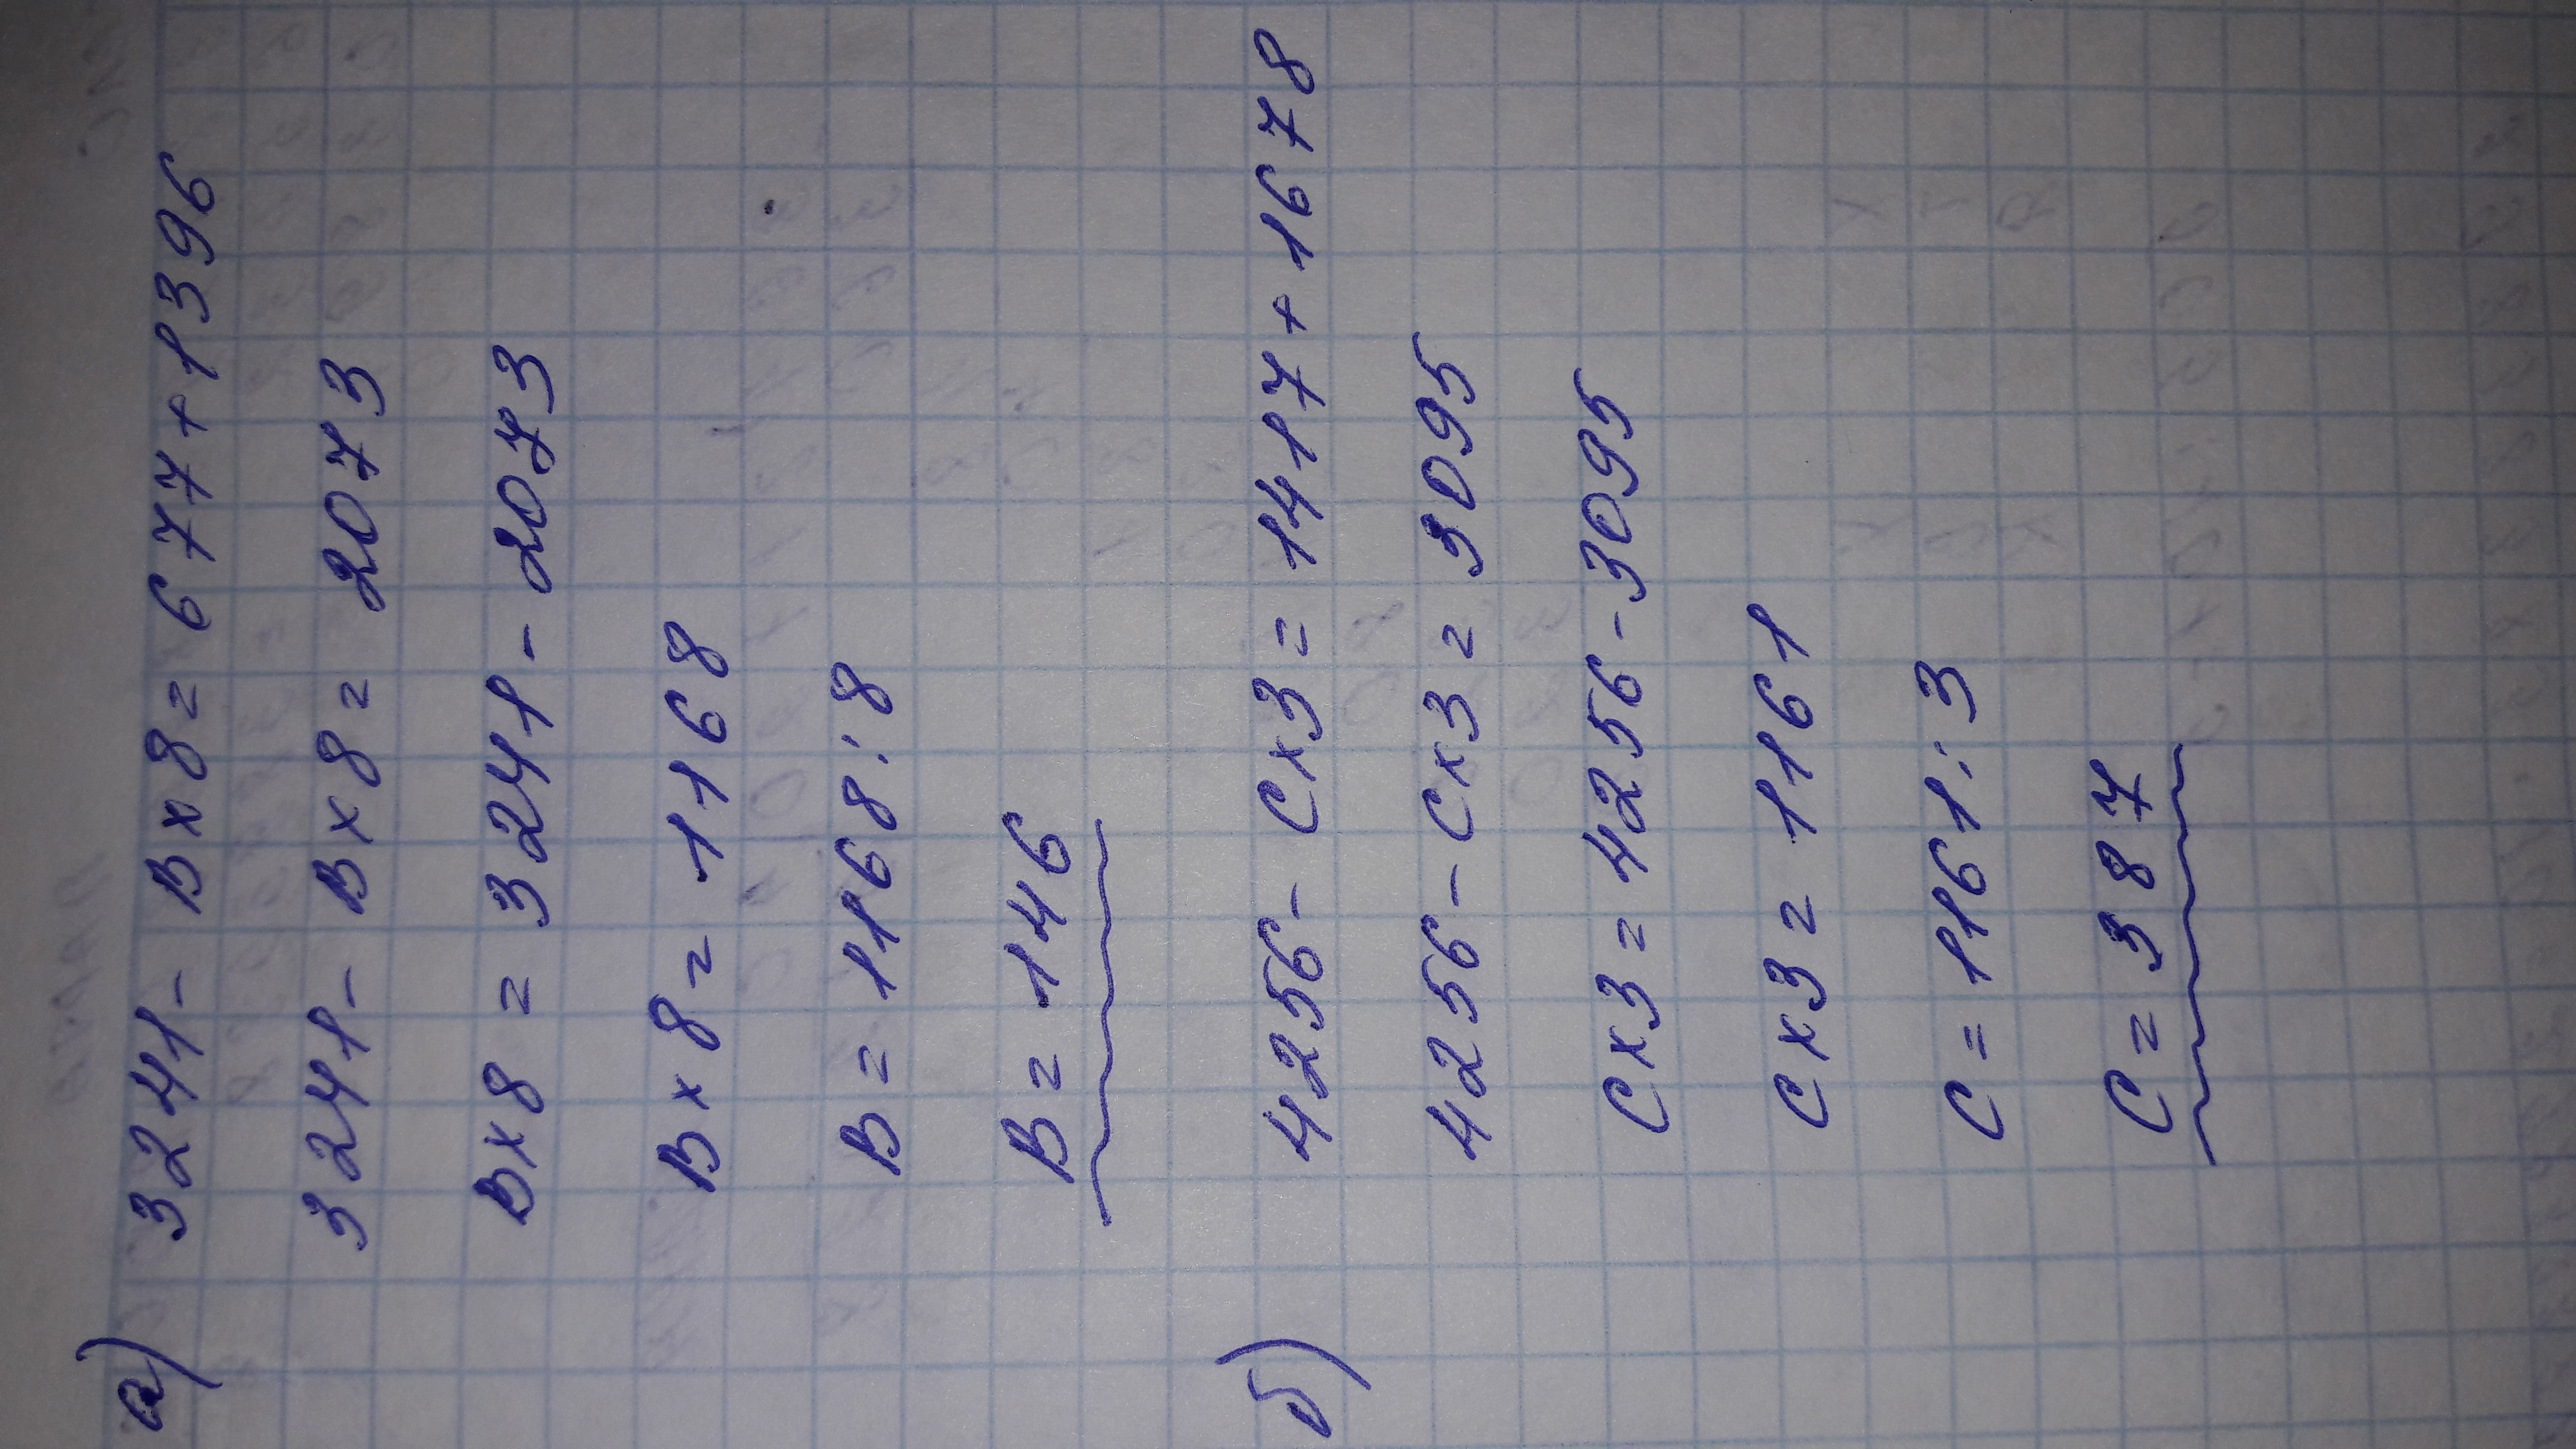 а) 3241 - В х 8 = 677 + 1396
3241 - В х 8 = 2073
В х 8 = 3241 - 2073
В х 8 = 1168
В = 1168 : 8
В = 146
б) 4256 - С х 3 = 1417 + 1678
4256 - С х 3 = 3095
С х 3 = 4256 - 3095
С х 3 = 1161
С = 1161 : 3
С = 387